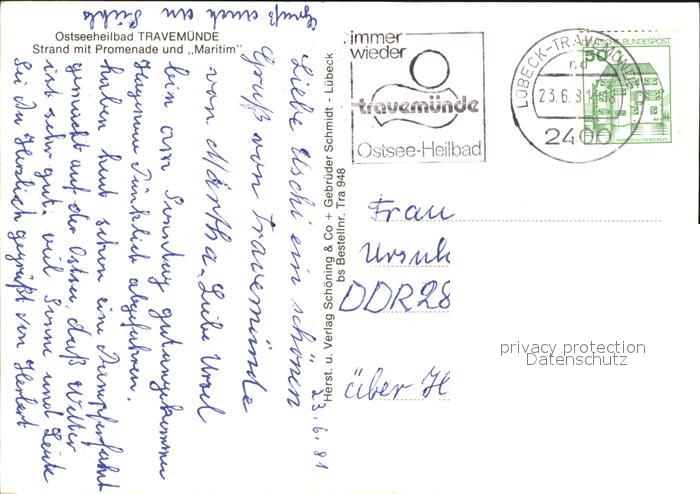 Ostseeheilbad TRAVEMÜNDE
Strand mit Promenade und „Maritim"
Gruß auch an
Liebe Uschi ein schönen
Gruß von Travemünde
von Martha. Liebe Ursel
bin am Sonntag gut angekommen
Pünklich abgefahren.
haben heut schon eine Dampferfahrt
gemacht auf der Ostsee, daß Wetter
ist sehr gut. viel Sonne und Leute
Sei du Herzlich gegrüßt von Herbert
23.6.81
Herst. u. Verlag Schöning & Co + Gebrüder Schmidt - Lübeck
bs Bestellnr. Tra 948
immer
wieder
travemünde
Ostsee-Heilbad
LÜBECK-TRAVEMÜNDE
23.6.81
2400
DEUTSCHE BUNDESPOST
50
Frau
Ursuk
DDR28
über H
privacy protection
Datenschutz